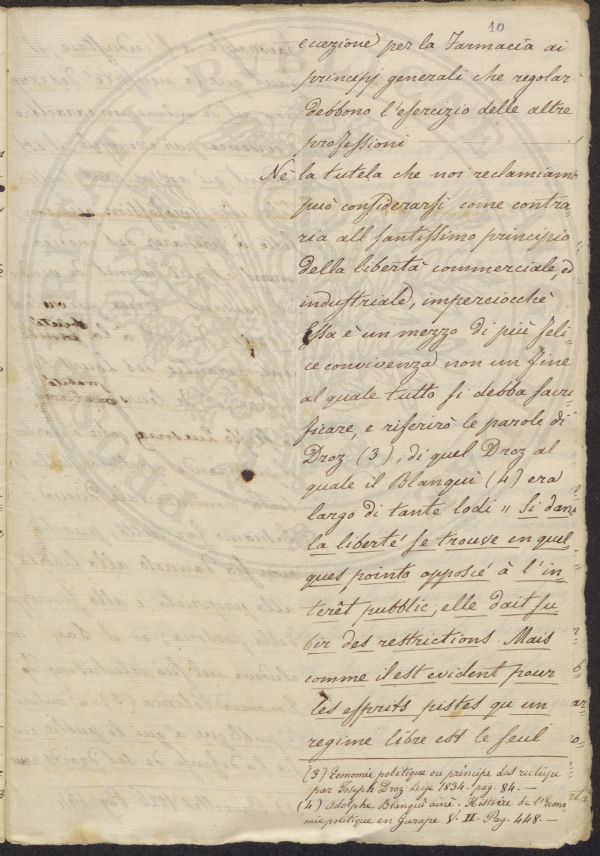 10
eccezione per la Farmacia ai
principj generali che regolar
debbono l'esercizio delle altre
professioni
Nè la tutela che noi reclamiamo
può considerarsi come contra-
ria all santissimo principio
della libertà commerciale ed
industriale, imperciocchè
Essa è un mezzo di più feli-
ce convivenza non un fine
al quale tutto si debba sacri-
ficare, e riferirò le parole di
Droz (3), di quel Droz al
quale il Blanqui (4) era
largo di tante lodi „ Si dans
la liberté se trouve en quel-
ques points opposié à l'in-
terêt pubblic, elle dait su
bir des restrictions. Mais
comme il est evident pour
les esprits pistes qu un
regime libre est le seul
(3) Economie politique ou principe des rectupe
par Joseph Droz Liege 1834. pag. 84. —
(4) Adolphe Blanqui ainé. Histoire de l'Econo
mie politique en Europe V. II. Pag. 448. —